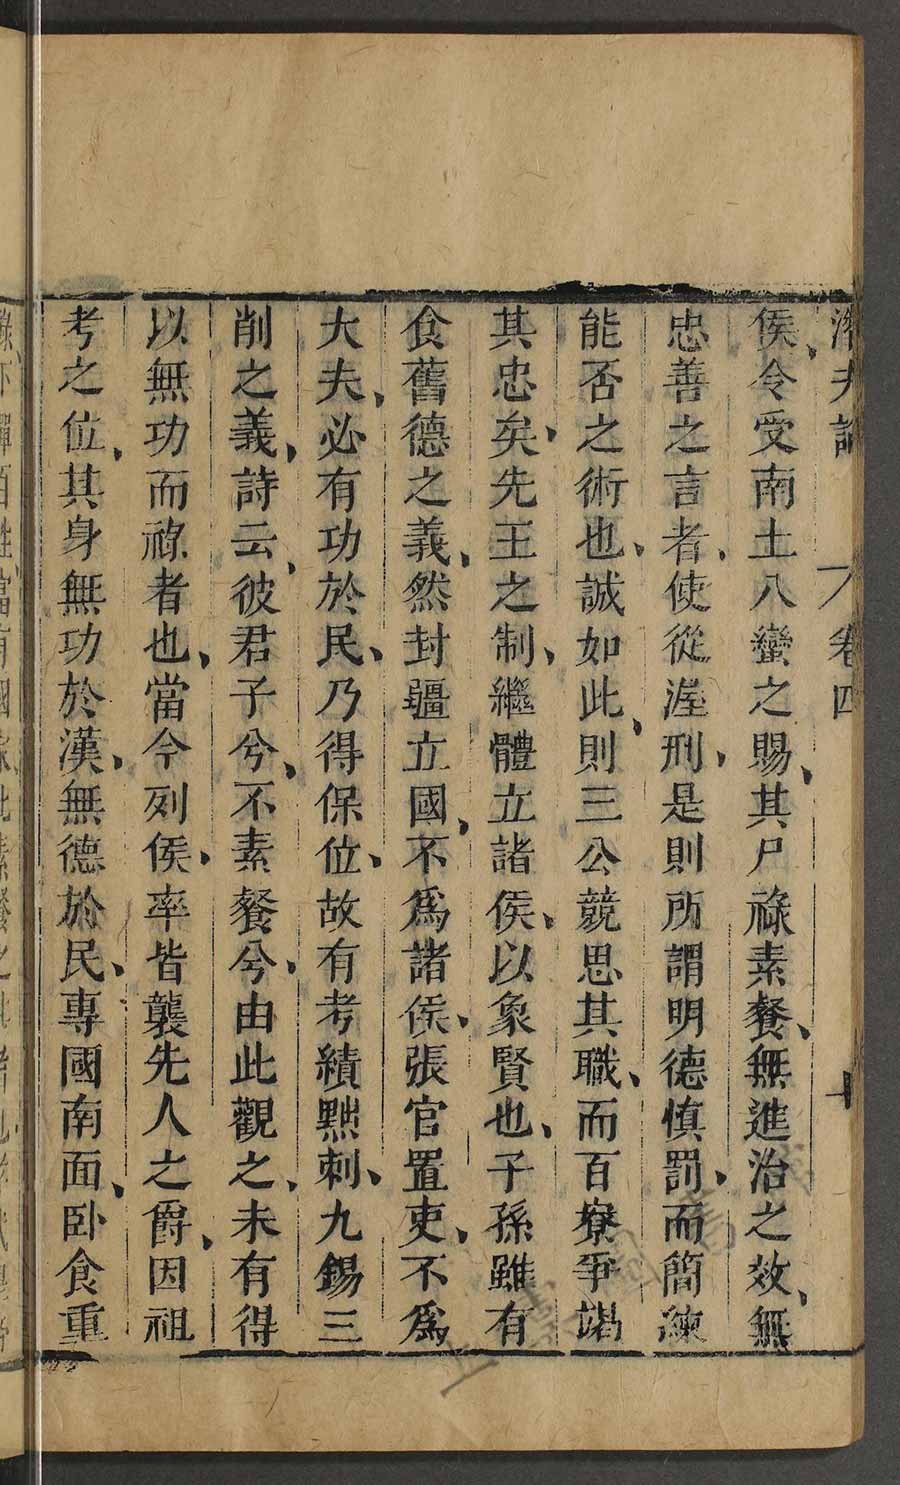 潛夫論 卷四 十
侯、令受南土八蠻之賜、其尸祿素餐、無進治之效、無
忠善之言者、使從渥刑、是則所謂明德慎罰、而簡練
能否之術也、誠如此、則三公競思其職、而百寮爭竭
其忠矣、先王之制、繼體立諸侯、以象賢也、子孫雖有
食舊德之義、然封疆立國、不爲諸侯、張官置吏、不爲
大夫、必有功於民、乃得保位、故有考績黜刺、九錫三
削之義、詩云、彼君子兮、不素餐兮、由此觀之、未有得
以無功而祿者也、當今列侯、率皆襲先人之爵、因祖
考之位、其身無功於漢、無德於民、專國南面、臥食重